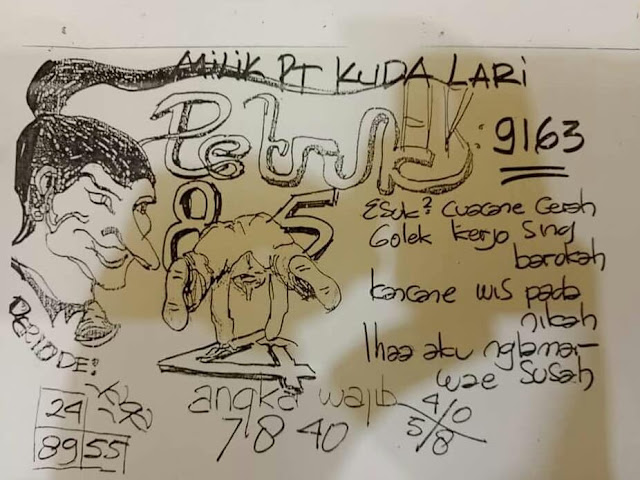 MILIK PT KUDA LARI
Petruk EK: 9163
8 5
Esuk² cuacane cerah
Golek kerjo sing
barokah
kancane wis pada
nikah
lhaa aku nglamar
wae susah
PERIODE:
4
angka wajib
7 8 4 0
24
89 55
4/0
5/8